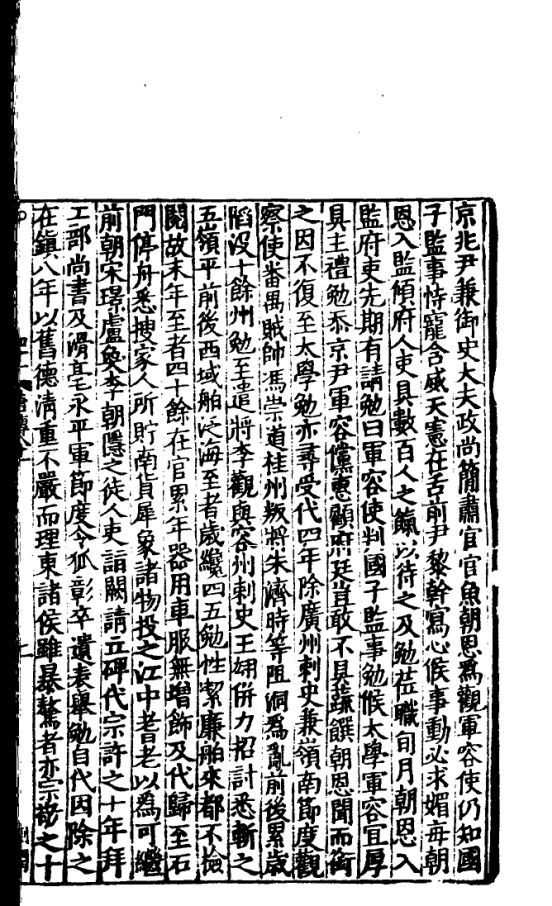 京兆尹兼御史大夫政尚簡肅官官魚朝恩爲觀軍容使仍知國
子監事恃寵含威天憲在舌前尹黎幹寫心候事動必求媚每朝
恩入監傾府人吏具數百人之餼以待之及勉莅職旬月朝恩入
監府吏先期有請勉曰軍容使判國子監事勉候太學軍容宜厚
具主禮勉忝京尹軍容儻惠顧府廷豈敢不具蔬饌朝恩聞而銜
之因不復至太學勉亦尋受代四年除廣州刺史兼嶺南節度觀
察使番禺賊帥馮崇道桂州叛將朱濟時等阻洞爲亂前後累歲
陷没十餘州勉至遣將李觀與容州刺史王翃併力招討悉斬之
五嶺平前後西域舶泛海至者歲纔四五勉性潔廉舶來都不檢
閱故末年至者四十餘在官累年器用車服無增飾及代歸至石
門停舟悉搜家人所貯南貨犀象諸物投之江中耆老以爲可繼
前朝宋璟盧奐李朝隱之徒人吏詣闕請立碑代宗許之十年拜
工部尚書及滑亳永平軍節度令狐彰卒遺表舉勉自代因除之
在鎮八年以舊德清重不嚴而理東諸侯雖暴驁者亦宗敬之十